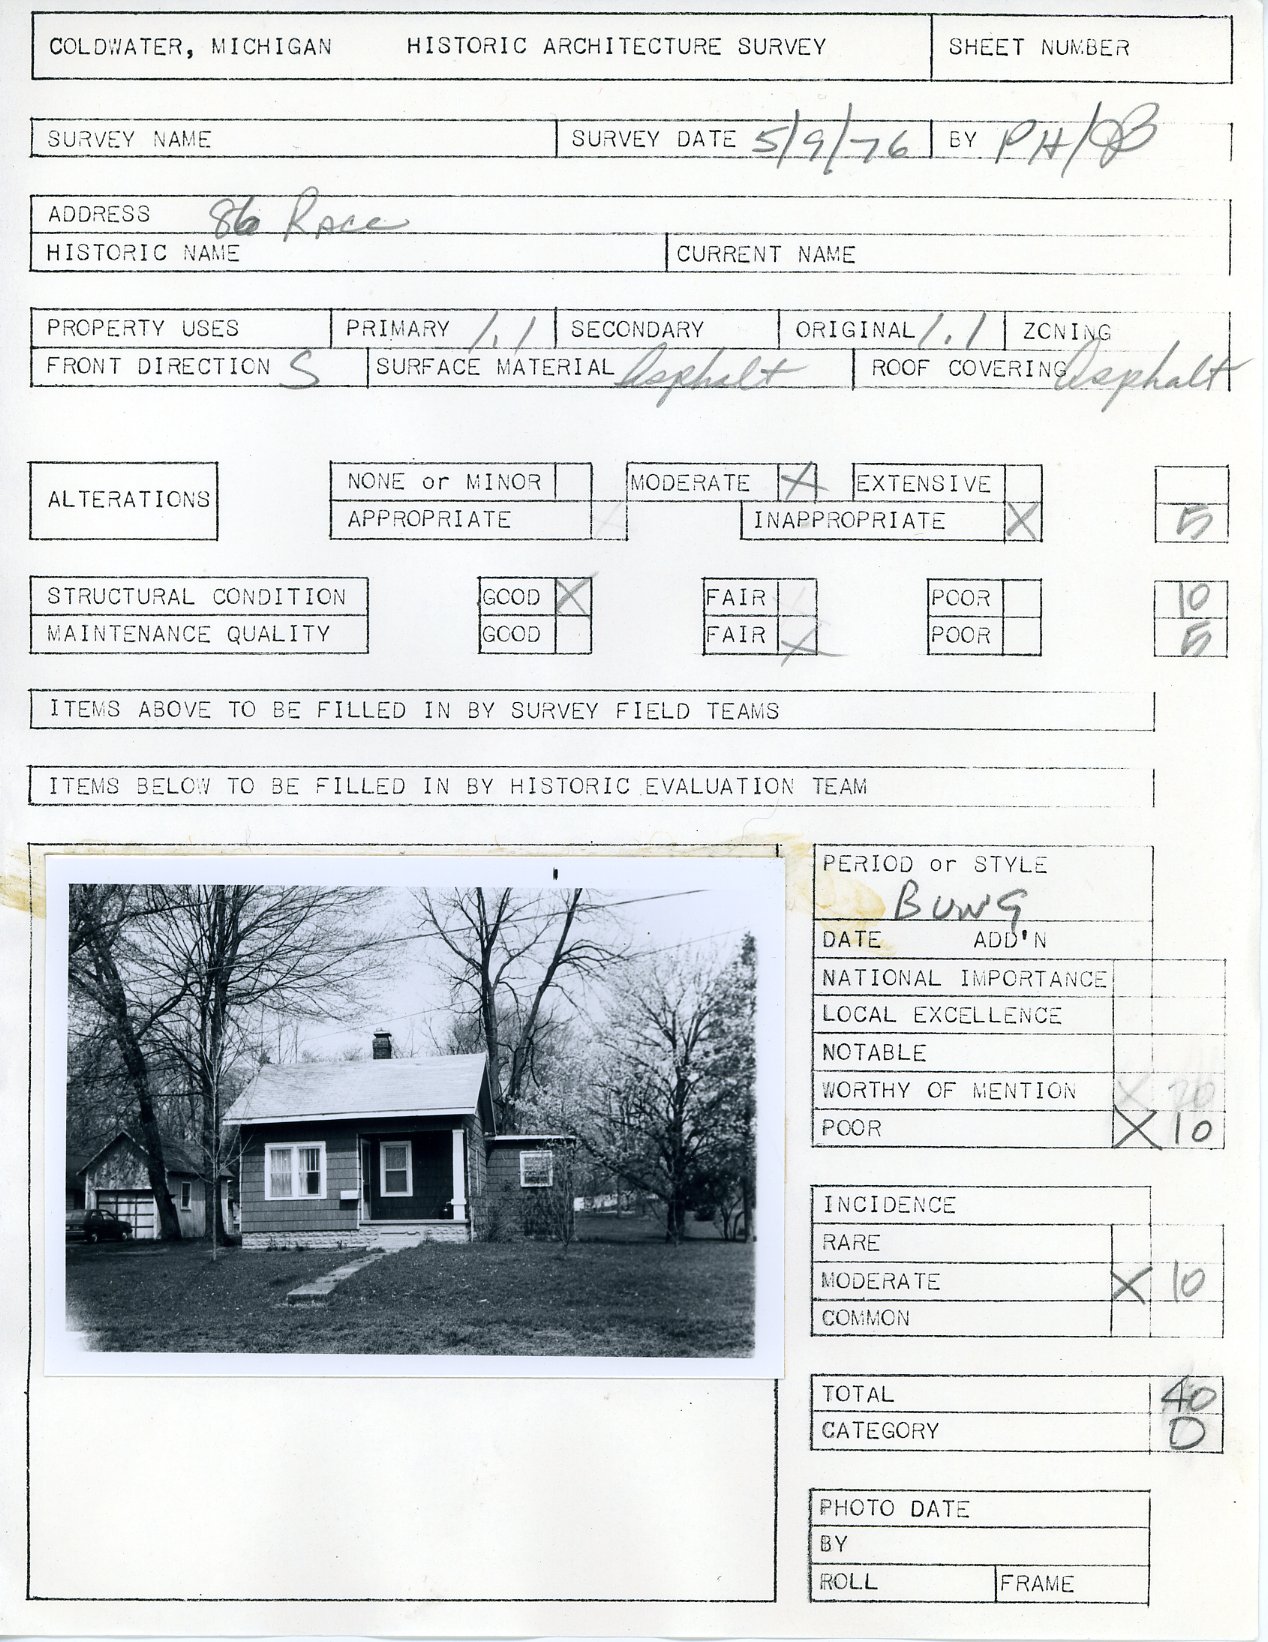 COLDWATER, MICHIGAN HISTORIC ARCHITECTURE SURVEY SHEET NUMBER
SURVEY NAME SURVEY DATE 5/9/76 BY PH/JB
ADDRESS 86 Race
HISTORIC NAME CURRENT NAME
PROPERTY USES PRIMARY 1.1 SECONDARY ORIGINAL 1.1 ZONING
FRONT DIRECTION S SURFACE MATERIAL Asphalt ROOF COVERING Asphalt
ALTERATIONS NONE or MINOR MODERATE X EXTENSIVE
APPROPRIATE INAPPROPRIATE X 5
STRUCTURAL CONDITION GOOD X FAIR POOR 10
MAINTENANCE QUALITY GOOD FAIR X POOR 5
ITEMS ABOVE TO BE FILLED IN BY SURVEY FIELD TEAMS
ITEMS BELOW TO BE FILLED IN BY HISTORIC EVALUATION TEAM
PERIOD or STYLE
BUNG
DATE ADD'N
NATIONAL IMPORTANCE
LOCAL EXCELLENCE
NOTABLE
WORTHY OF MENTION X 20
POOR X 10
INCIDENCE
RARE
MODERATE X 10
COMMON
TOTAL 40
CATEGORY D
PHOTO DATE
BY
ROLL FRAME